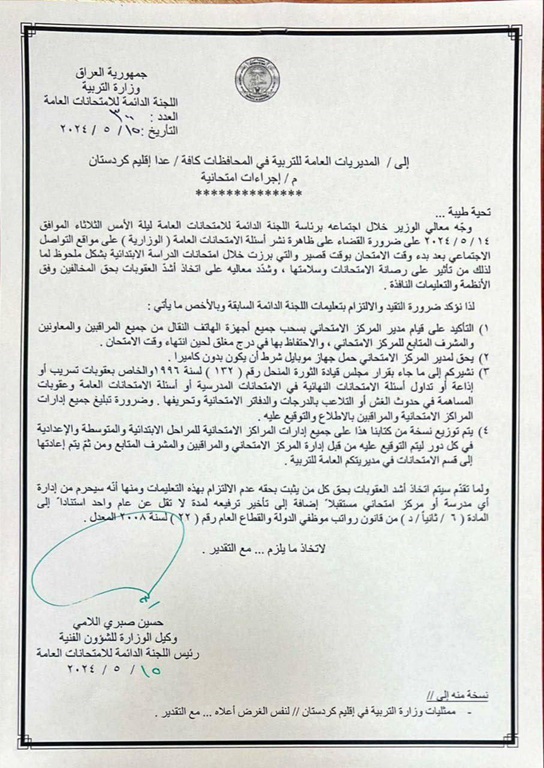 جمهورية العراق
وزارة التربية
اللجنة الدائمة للامتحانات العامة
العدد : ٣٠
التأريخ :١٥ / ٥ / ٢٠٢٤
إلى / المديريات العامة للتربية في المحافظات كافة / عدا إقليم كردستان
م / إجراءات امتحانية
**************
تحية طيبة ...
وجّه معالي الوزير خلال اجتماعه برئاسة اللجنة الدائمة للامتحانات العامة ليلة الأمس الثلاثاء الموافق
١٤ / ٥ / ٢٠٢٤ على ضرورة القضاء على ظاهرة نشر أسئلة الامتحانات العامة ( الوزارية ) على مواقع التواصل
الاجتماعي بعد بدء وقت الامتحان بوقت قصير والتي برزت خلال امتحانات الدراسة الابتدائية بشكل ملحوظ لما
لذلك من تأثير على رصانة الامتحانات وسلامتها ، وشدّد معاليه على اتخاذ أشدّ العقوبات بحق المخالفين وفق
الأنظمة والتعليمات النافذة .
لذا نؤكد ضرورة التقيد والالتزام بتعليمات اللجنة الدائمة السابقة وبالأخص ما يأتي :
١) التأكيد على قيام مدير المركز الامتحاني بسحب جميع أجهزة الهاتف النقال من جميع المراقبين والمعاونين
والمشرف المتابع للمركز الامتحاني ، والاحتفاظ بها في درج مغلق لحين انتهاء وقت الامتحان .
٢) يحق لمدير المركز الامتحاني حمل جهاز موبايل شرط أن يكون بدون كاميرا .
٣) نشيركم إلى ما جاء بقرار مجلس قيادة الثورة المنحل رقم ( ١٣٢ ) لسنة ١٩٩٦والخاص بعقوبات تسريب أو
إذاعة أو تداول أسئلة الامتحانات النهائية في الامتحانات المدرسية أو أسئلة الامتحانات العامة وعقوبات
المساهمة في حدوث الغش أو التلاعب بالدرجات والدفاتر الامتحانية وتحريفها . وضرورة تبليغ جميع إدارات
المراكز الامتحانية والمراقبين بالاطلاع والتوقيع عليه .
٤) يتم توزيع نسخة من كتابنا هذا على جميع إدارات المراكز الامتحانية للمراحل الابتدائية والمتوسطة والإعدادية
في كل دور ليتم التوقيع عليه من قبل إدارة المركز الامتحاني والمراقبين والمشرف المتابع ومن ثم يتم إعادتها
إلى قسم الامتحانات في مديريتكم العامة للتربية .
ولما تقدّم سيتم اتخاذ أشد العقوبات بحق كل من يثبت بحقه عدم الالتزام بهذه التعليمات ومنها أنّه سيحرم من إدارة
أي مدرسة أو مركز امتحاني مستقبلاً إضافة إلى تأخير ترفيعه لمدة لا تقل عن عام واحد استناداً إلى
المادة ( ٦ / ثانياً / د ) من قانون رواتب موظفي الدولة والقطاع العام رقم ( ٢٢ ) لسنة ٢٠٠٨ المعدل .
لاتخاذ ما يلزم ... مع التقدير .
حسين صبري اللامي
وكيل الوزارة للشؤون الفنية
رئيس اللجنة الدائمة للامتحانات العامة
١٥ / ٥ / ٢٠٢٤
نسخة منه إلى //
- ممثليات وزارة التربية في إقليم كردستان // لنفس الغرض أعلاه ... مع التقدير .